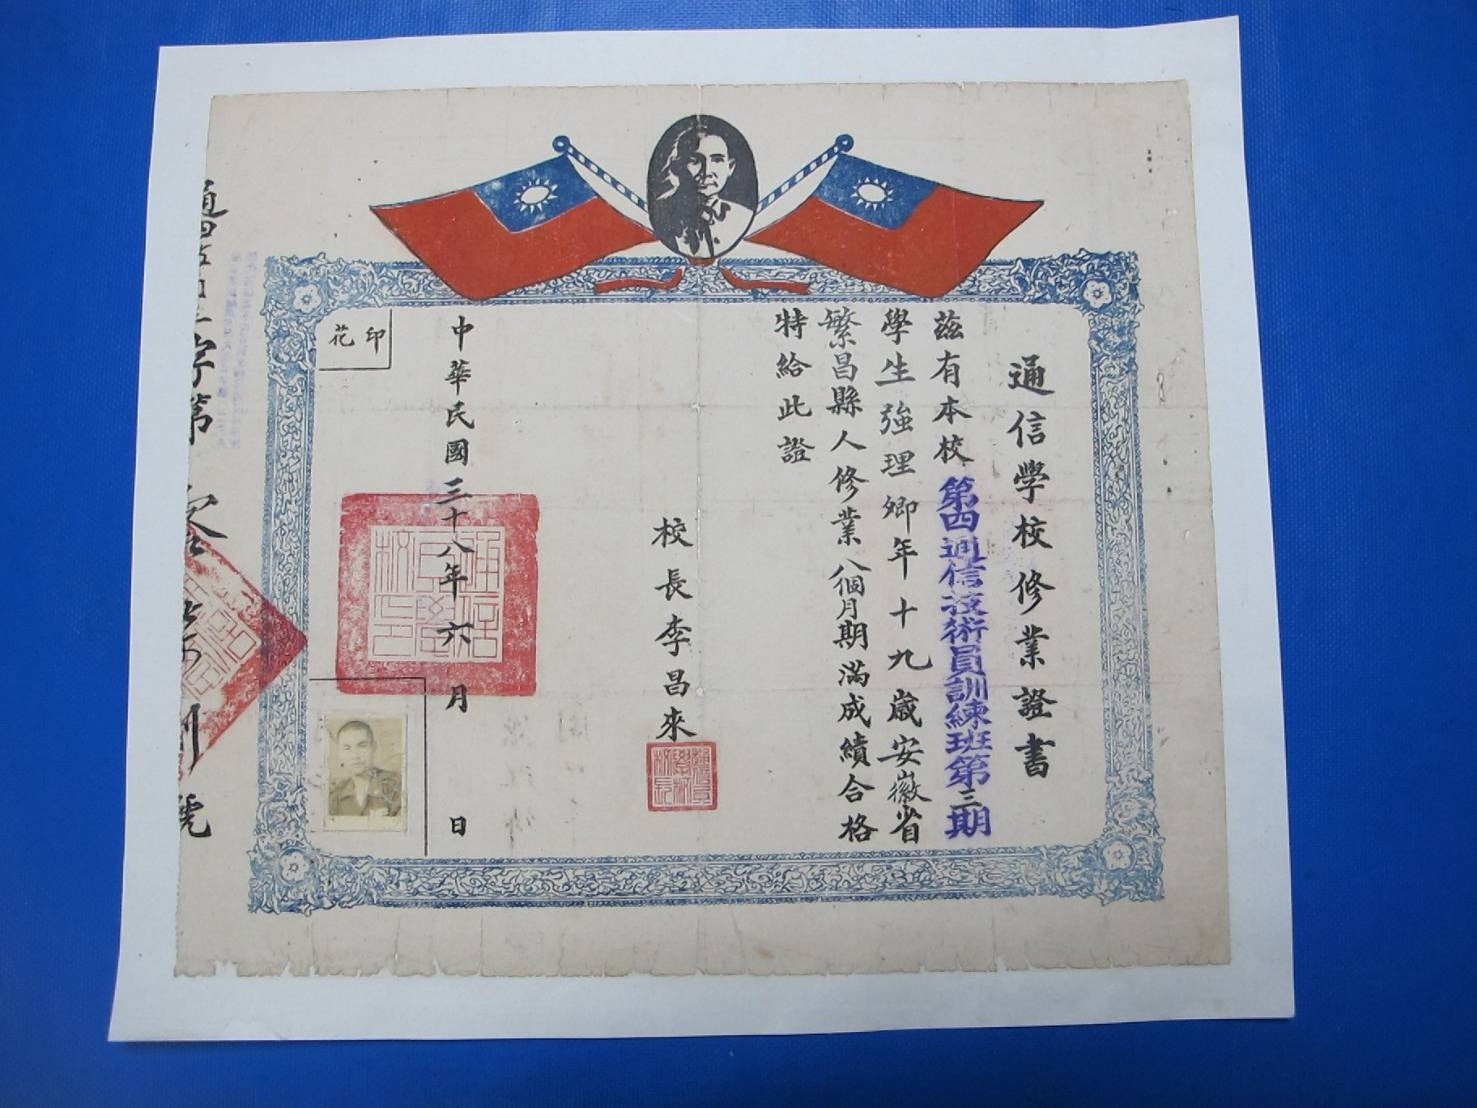 通信學校修業證書
茲有本校第四通信技術員訓練班第三期
學生強理卿年十九歲安徽省
繁昌縣人修業八個月期滿成績合格
特給此證
校長李昌來
中華民國三十八年六月 日
印花
字第
號